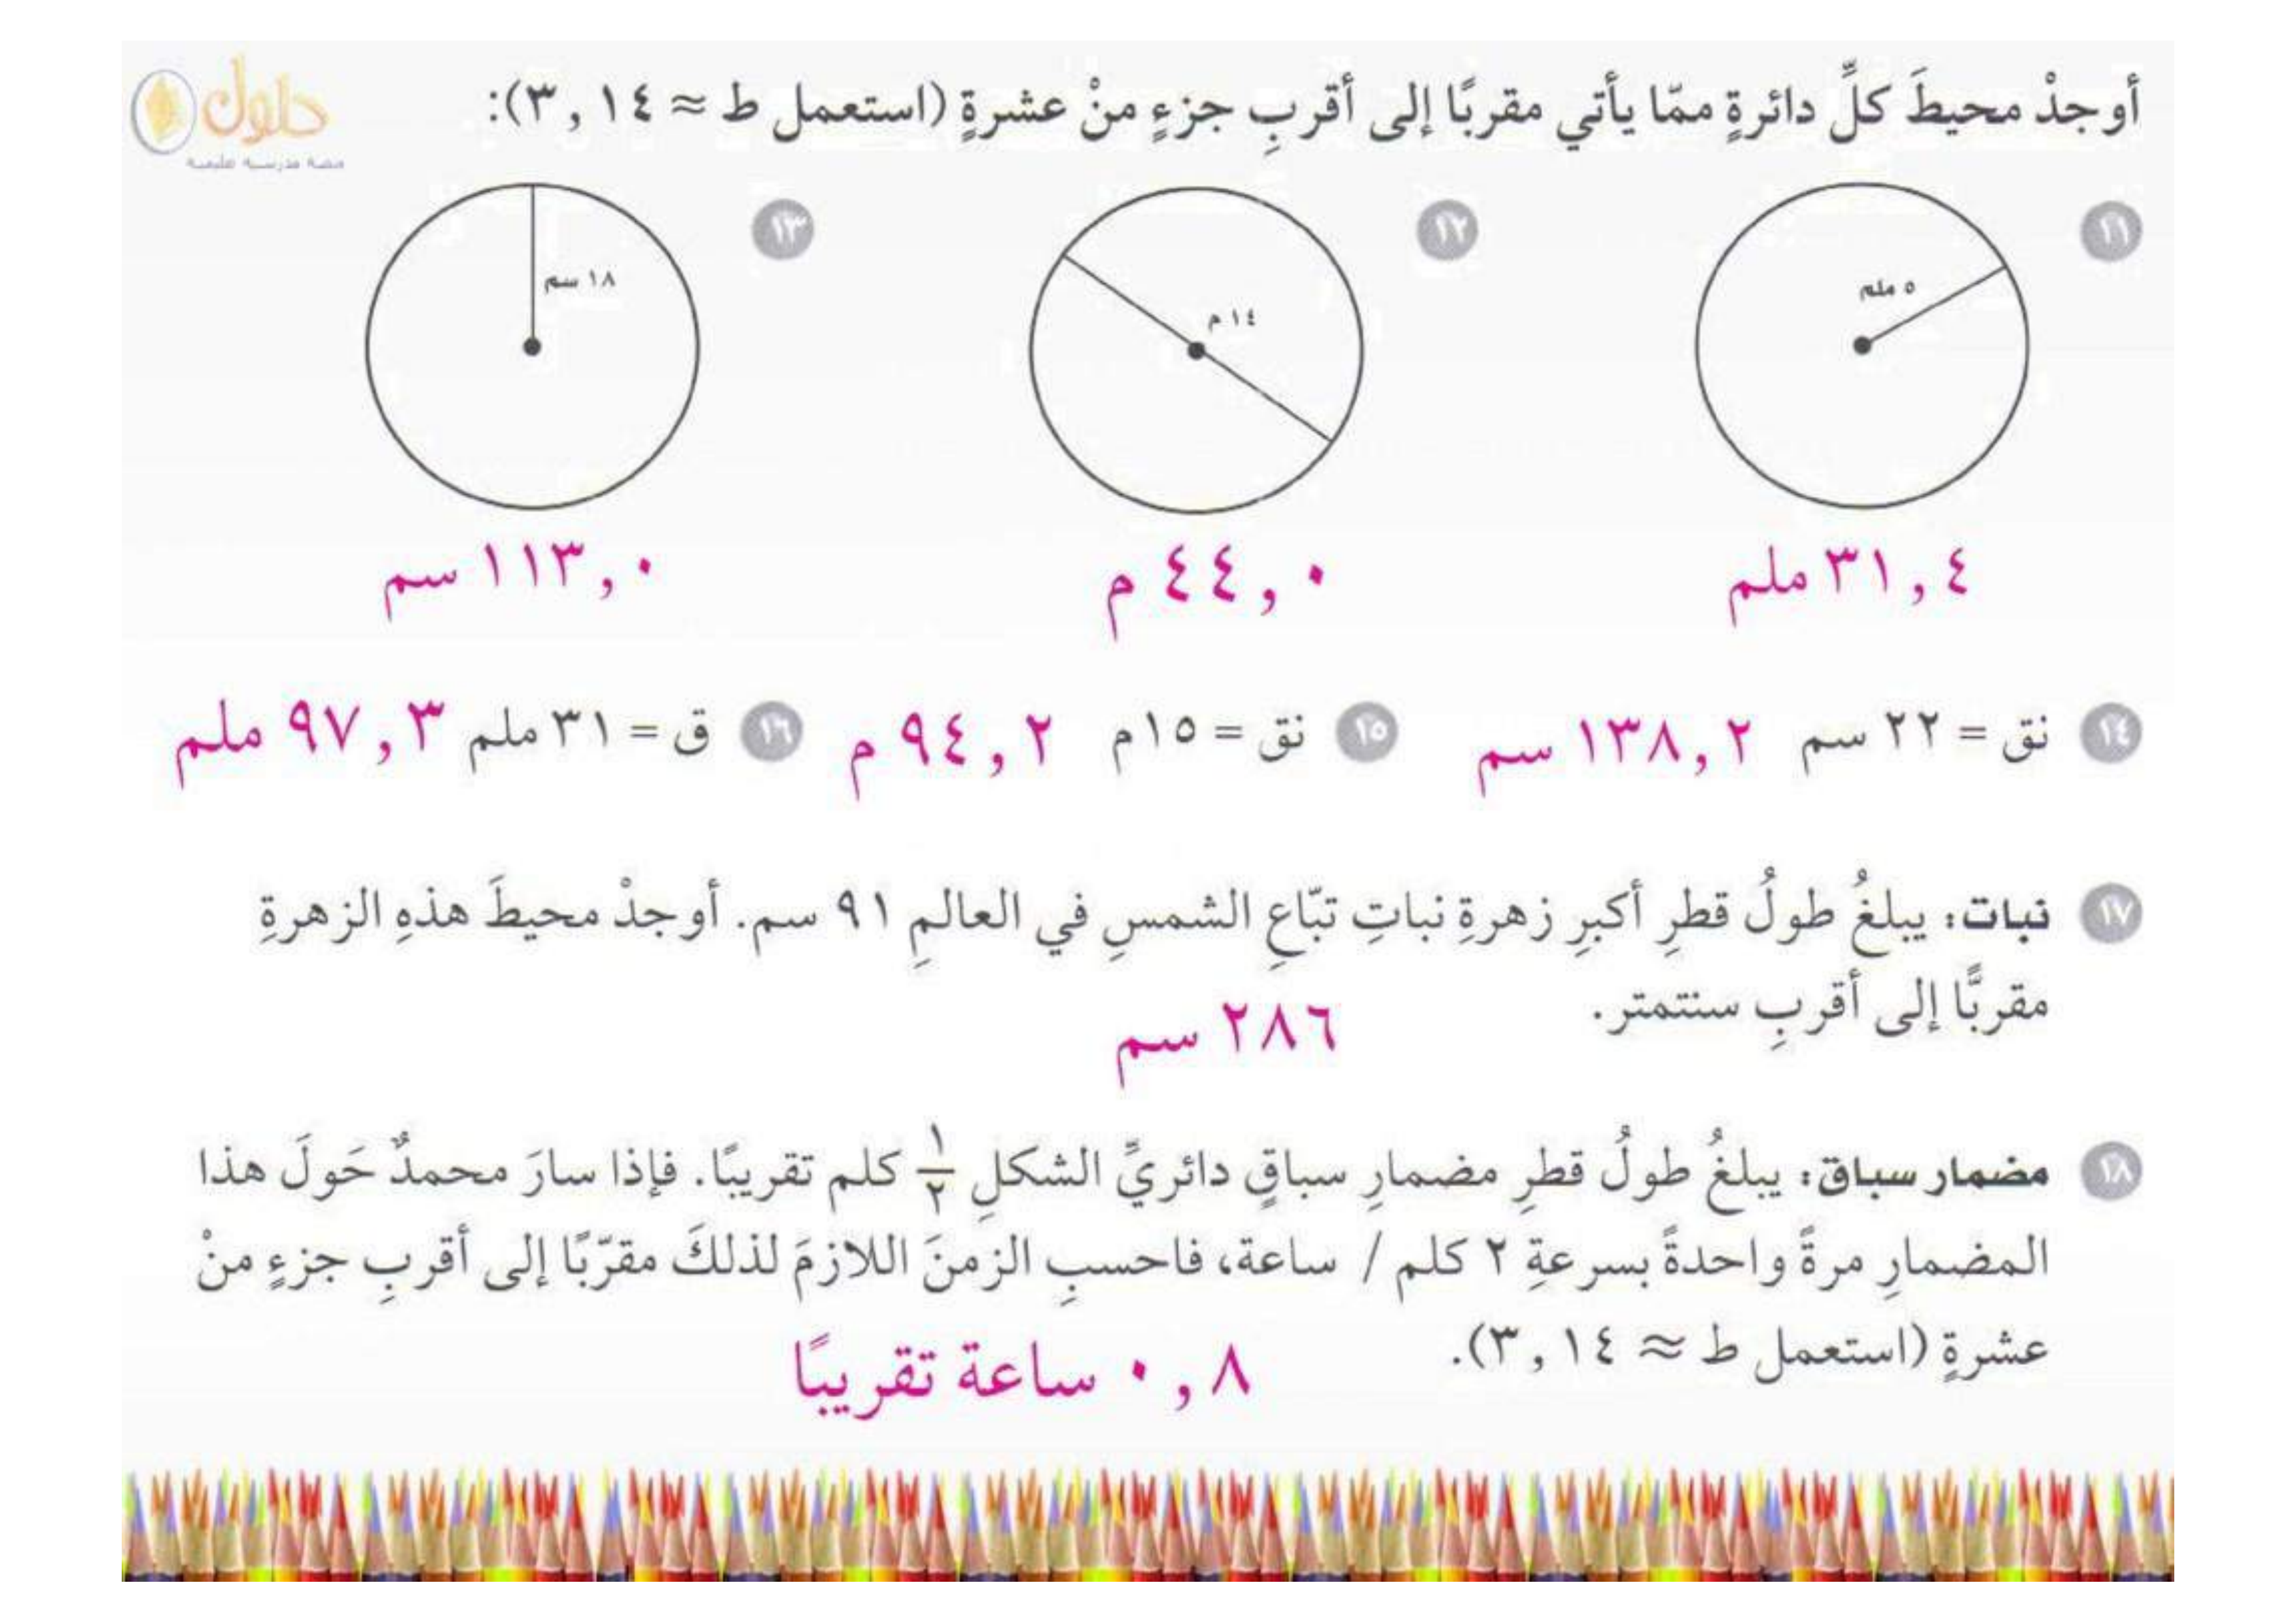 أوجدْ محيطَ كلِّ دائرةٍ ممّا يأتي مقربًا إلى أقربِ جزءٍ منْ عشرةٍ (استعمل ط ≈ ٣,١٤):
حلول
١١
٥ ملم
١٢
١٤ م
١٣
١٨ سم
٣١,٤ ملم
٤٤,٠ م
١١٣,٠ سم
١٤ نق = ٢٢ سم ١٣٨,٢ سم
١٥ نق = ١٥ م ٩٤,٢ م
١٦ ق = ٣١ ملم ٩٧,٣ ملم
١٧ نبات: يبلغُ طولُ قطرِ أكبرِ زهرةِ نباتِ تبّاعِ الشمسِ في العالمِ ٩١ سم. أوجدْ محيطَ هذهِ الزهرةِ
مقربًّا إلى أقربِ سنتمتر.
٢٨٦ سم
١٨ مضمار سباق: يبلغُ طولُ قطرِ مضمارِ سباقٍ دائريِّ الشكلِ ١/٢ كلم تقريبًا. فإذا سارَ محمدٌ حَولَ هذا
المضمارِ مرةً واحدةً بسرعةِ ٢ كلم / ساعة، فاحسبِ الزمنَ اللازمَ لذلكَ مقرّبًا إلى أقربِ جزءٍ منْ
عشرةٍ (استعمل ط ≈ ٣,١٤).
٠,٨ ساعة تقريبًا